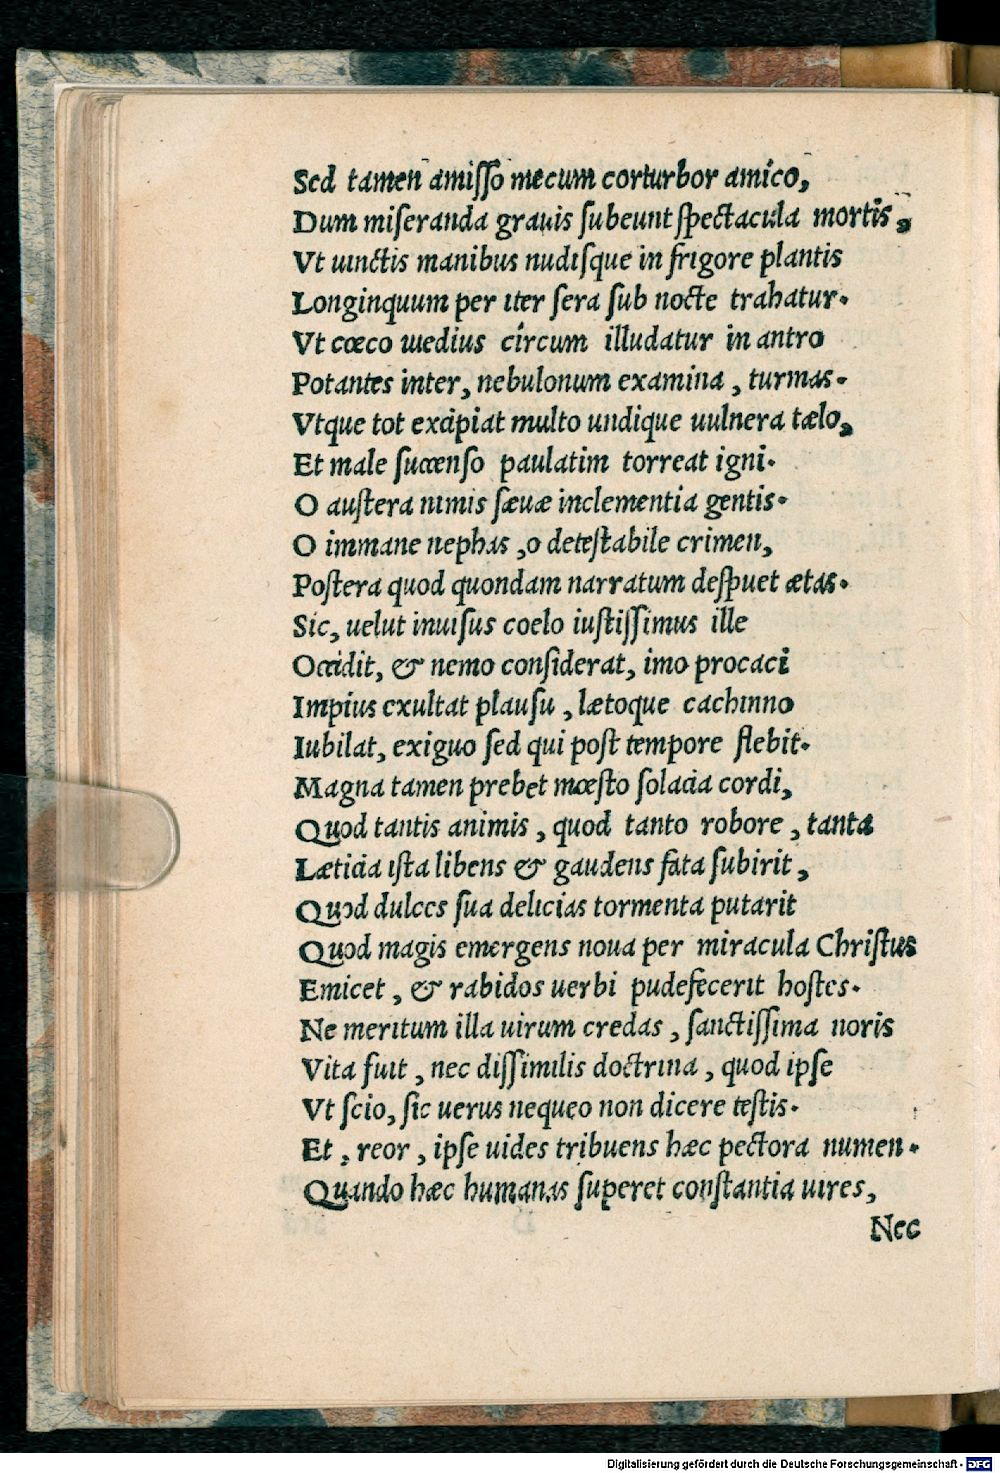 Sed tamen amisso mecum corturbor amico,
Dum miseranda grauis subeunt spectacula mortis,
Vt uinctis manibus nudisque in frigore plantis
Longinquum per iter sera sub nocte trahatur.
Vt cœco medius circum illudatur in antro
Potantes inter, nebulonum examina, turmas.
Vtque tot excipiat multo undique uulnera tælo,
Et male succenso paulatim torreat igni.
O austera nimis sæuæ inclementia gentis.
O immane nephas, o detestabile crimen,
Postera quod quondam narratum despuet ætas.
Sic, uelut inuisus coelo iustissimus ille
Occidit, & nemo considerat, imo procaci
Impius exultat plausu, lætoque cachinno
Iubilat, exiguo sed qui post tempore flebit.
Magna tamen prebet mœsto solacia cordi,
Quod tantis animis, quod tanto robore, tanta
Læticia ista libens & gaudens fata subirit,
Quod dulces sua delicias tormenta putarit
Quod magis emergens noua per miracula Christus
Emicet, & rabidos uerbi pudefecerit hostes.
Ne meritum illa uirum credas, sanctissima noris
Vita fuit, nec dissimilis doctrina, quod ipse
Vt scio, sic uerus nequeo non dicere testis.
Et, reor, ipse uides tribuens hæc pectora numen.
Quando hæc humanas superet constantia uires,
Nec
Digitalisierung gefördert durch die Deutsche Forschungsgemeinschaft - DFG